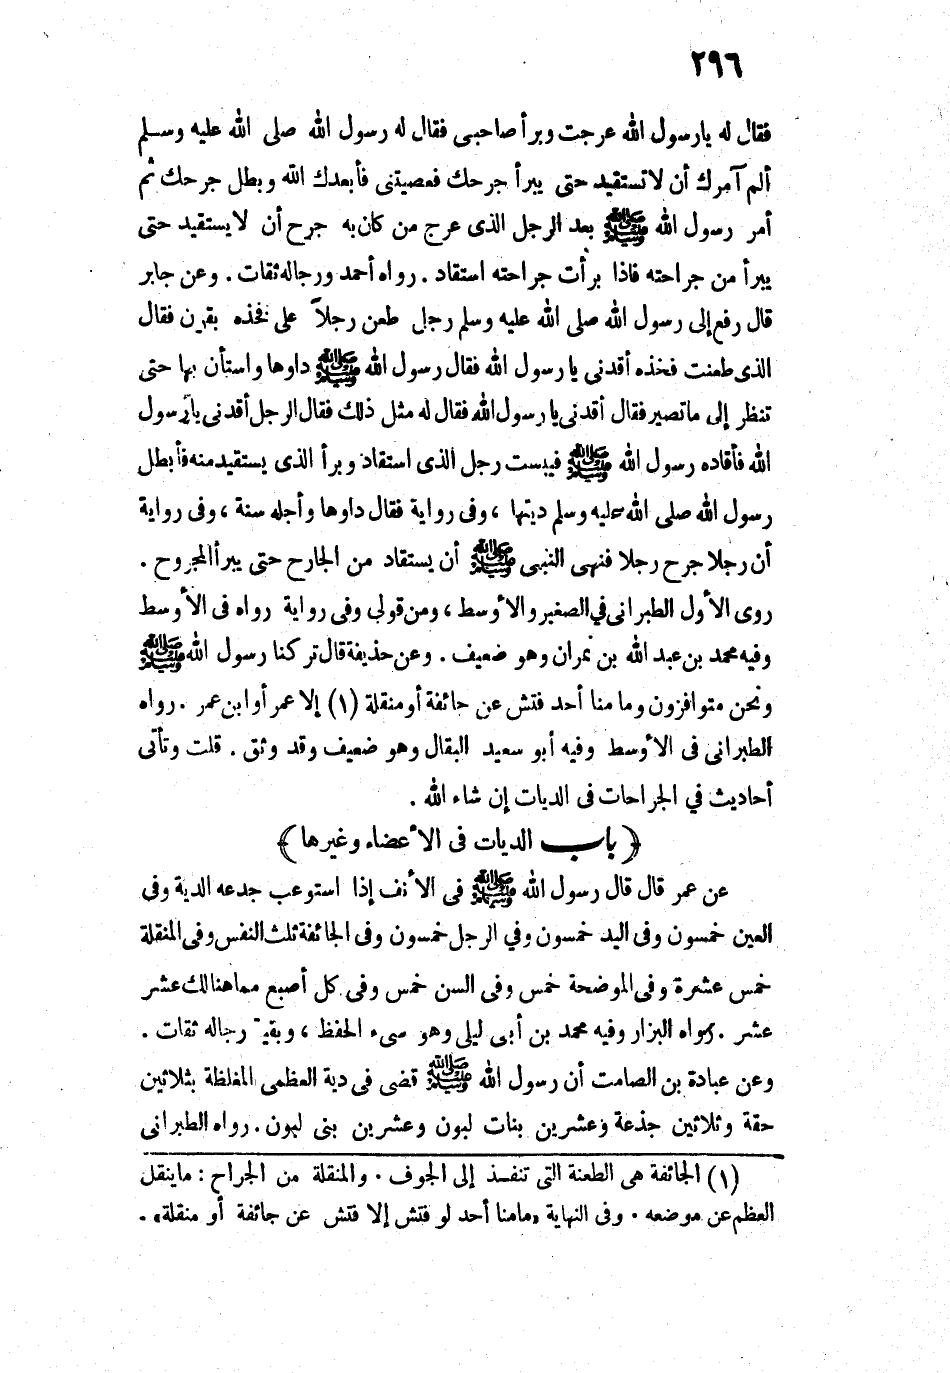 ٢٩٦
فقال له يارسول الله عرجت وبرأ صاحبى فقال له رسول الله صلى الله عليه وسلم
ألم آمرك أن لا تستقيد حتى يبرأ جرحك فعصيتنى فأبعدك الله وبطل جرحك ثم
أمر رسول الله ﷺ بعد الرجل الذى عرج من كان به جرح أن لا يستقيد حتى
يبرأ من جراحته فاذا برأت جراحته استقاد . رواه أحمد ورجاله ثقات . وعن جابر
قال رفع إلى رسول الله صلى الله عليه وسلم رجل طعن رجلاً على فخذه بقرن فقال
الذى طعنت فخذه أقدنى يا رسول الله فقال رسول الله ﷺ داوها واستأن بها حتى
تنظر إلى ما تصير فقال أقدنى يا رسول الله فقال له مثل ذلك فقال الرجل أقدنى يا رسول
الله فأقاده رسول الله ﷺ فيبست رجل الذى استقاد وبرأ الذى يستقيد منه فأبطل
رسول الله صلى الله عليه وسلم ديتها ، وفى رواية فقال داوها وأجله سنة ، وفى رواية
أن رجلا جرح رجلا فنهى النبى ﷺ أن يستقاد من الجارح حتى يبرأ المجروح .
روى الأول الطبرانى في الصغير والأوسط ، ومن قولى وفى رواية رواه فى الأوسط
وفيه محمد بن عبد الله بن نمران وهو ضعيف . وعن حذيفة قال تركنا رسول الله ﷺ
ونحن متوافزون وما منا أحد فتش عن جائفة أو منقلة (١) إلا عمر أوابن عمر . رواه
الطبرانى فى الأوسط وفيه أبو سعيد البقال وهو ضعيف وقد وثق . قلت وتأتى
أحاديث في الجراحات فى الديات إن شاء الله .
﴿ باب الديات فى الأعضاء وغيرها ﴾
عن عمر قال قال رسول الله ﷺ فى الأنف إذا استوعب جدعه الدية وفى
العين خمسون وفى اليد خمسون وفي الرجل خمسون وفى الجائفة ثلث النفس وفى المنقلة
خمس عشرة وفى الموضحة خمس وفى السن خمس وفى كل أصبع مما هنالك عشر
عشر . رواه البزار وفيه محمد بن أبى ليلى وهو سىء الحفظ ، وبقية رجاله ثقات .
وعن عبادة بن الصامت أن رسول الله ﷺ قضى فى دية العظمى المغلظة بثلاثين
حقة وثلاثين جذعة وعشرين بنات لبون وعشرين بنى لبون . رواه الطبرانى
(١) الجائفة هى الطعنة التى تنفذ إلى الجوف . والمنقلة من الجراح : ماينقل
العظم عن موضعه . وفى النهاية «مامنا أحد لو فتش إلا فتش عن جائفة أو منقلة» .